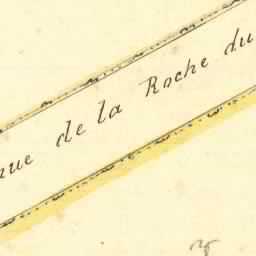 nue de la Roche du